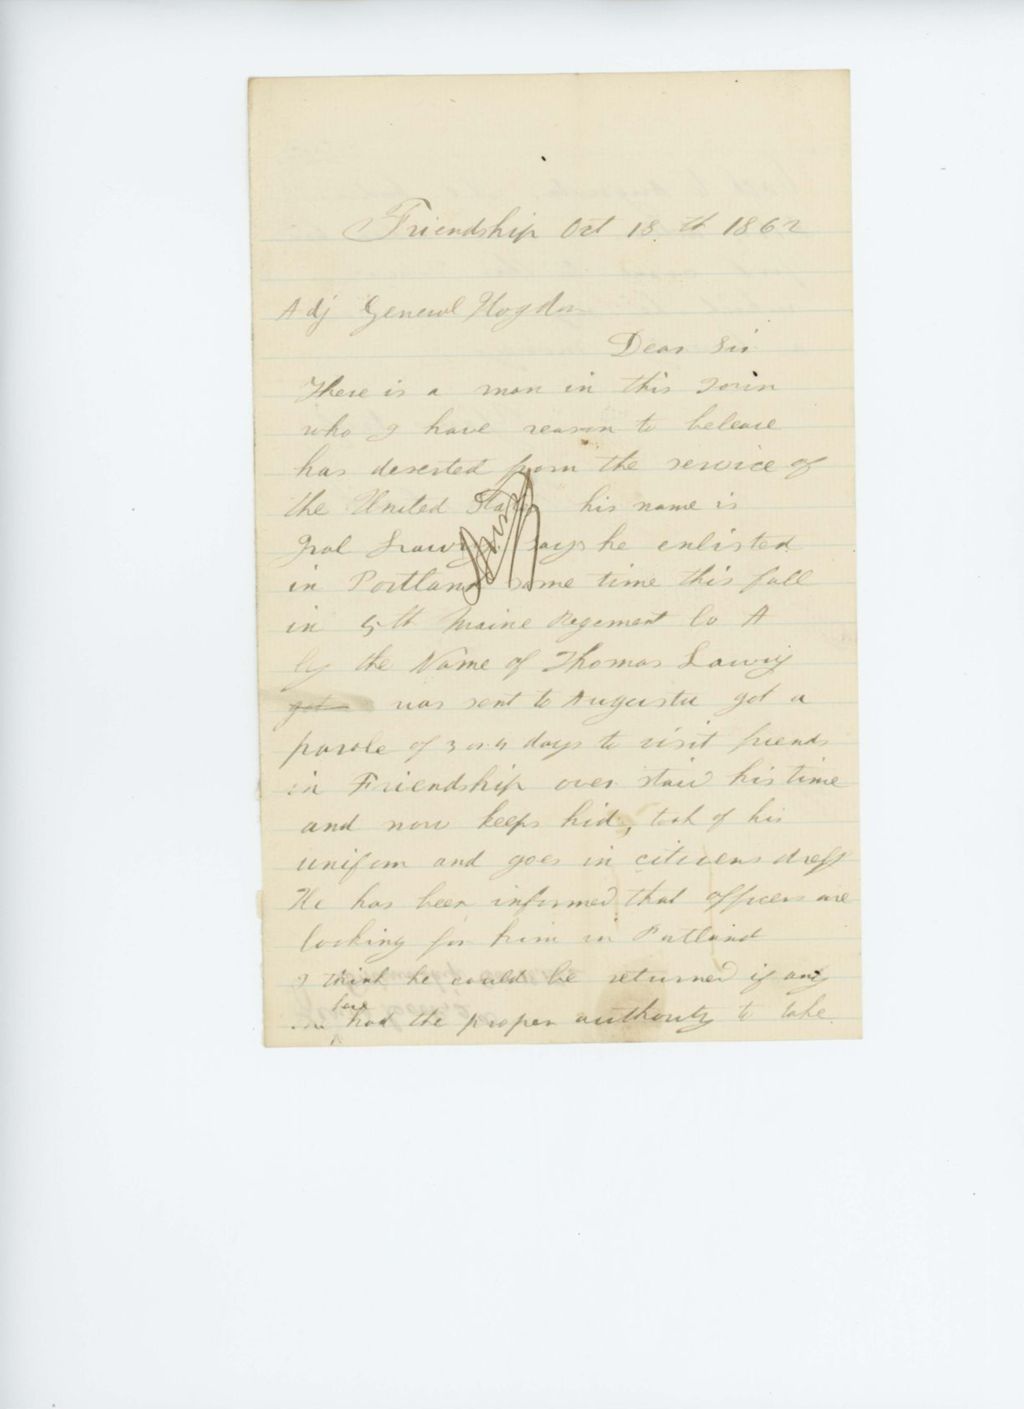 Friendship Oct 18th 1862
Adj General Hogdon
Dear Sir
There is a man in this Town
who I have reason to beleave
has deserted from the service of
the United States his name is
says he enlisted
in Portland some time this fall
in 5th Maine Regement Co A
by the Name of Thomas Lawry
got was sent to Augusta got a
parole of 3 or 4 days to visit friends
in Friendship over staid his time
and now keeps hid, took of his
uniform and goes in citizens dress
He has been informed that officers are
looking for him in Portland
I think he could be returned if any
had the proper authority to take